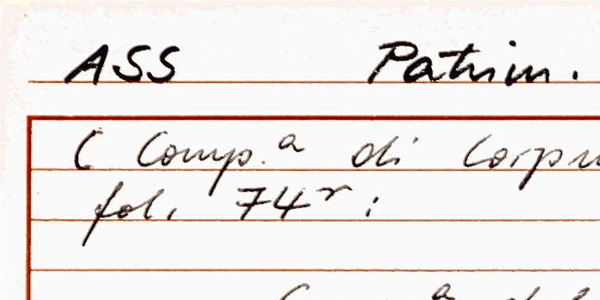 ASS Patrim.
( Comp.a di Corpu
fol. 74r: